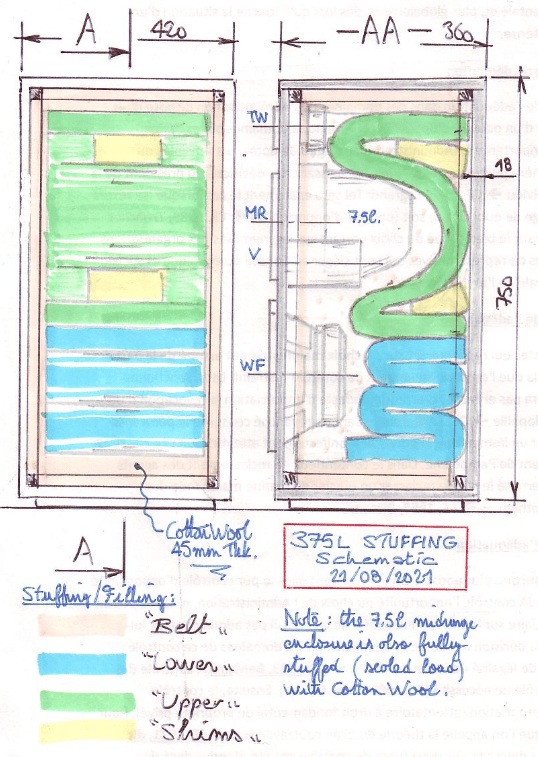 A 420 -AA- 360
TW
18
MR 7.5l.
V
750
WF
Cotton Wool
45mm Thk.
A
375L STUFFING
Schematic
21/08/2021
Stuffing/Filling:
"Belt"
"Lower"
"Upper"
"Shims"
Note: the 7.5l midrange
enclosure is also fully
stuffed (sealed load)
with Cotton Wool.